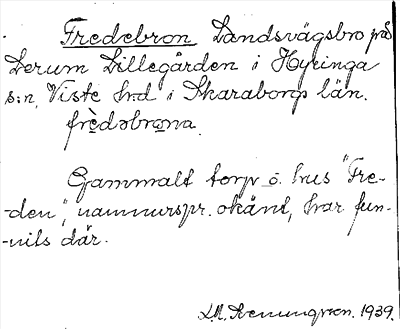 Fredebron Landsvägsbro på
Lerum Lillegården i Hyringa
s:n, Viste hrd i Skaraborgs län.
frèdəbrona.
Gammalt torp o. hus "Fre-
-den", namnurspr. okänt, har fun-
-nits där.
1939.